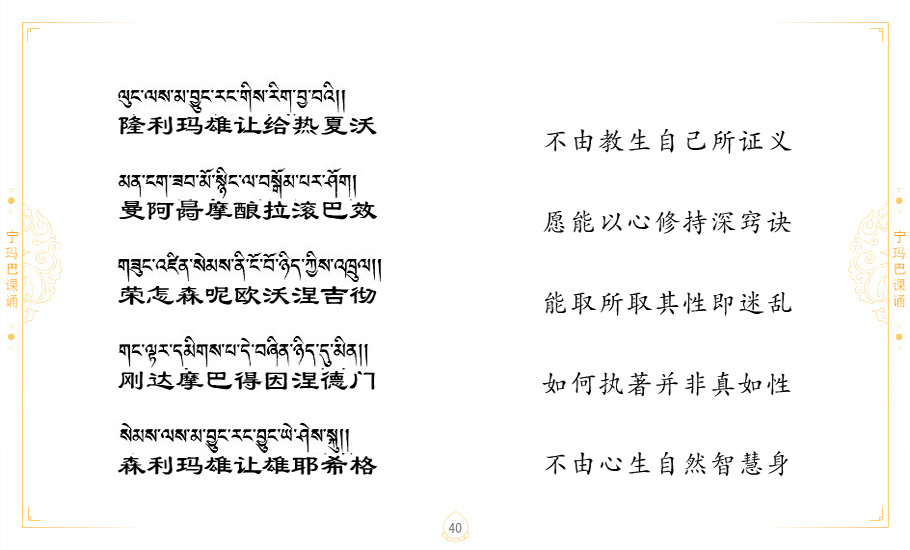 ལུང་ལས་མ་བྱུང་རང་གིས་རིག་བྱ་བའི།།
隆利玛雄让给热夏沃
不由教生自己所证义
མན་ངག་ཟབ་མོ་སྙིང་ལ་བསྒོམ་པར་ཤོག།
曼阿摩酿拉滚巴效
愿能以心修持深窍诀
གཟུང་འཛིན་སེམས་ནི་ངོ་བོ་ཉིད་ཀྱིས་འཁྲུལ།།
荣怎森呢欧沃涅吉彻
能取所取其性即迷乱
གང་ལྟར་དམིགས་པ་དེ་བཞིན་ཉིད་དུ་མིན།།
刚达摩巴得因涅德门
如何执著并非真如性
སེམས་ལས་མ་བྱུང་རང་བྱུང་ཡེ་ཤེས་སྐུ།།
森利玛雄让雄耶希格
不由心生自然智慧身
宁玛巴课诵
宁玛巴课诵
40